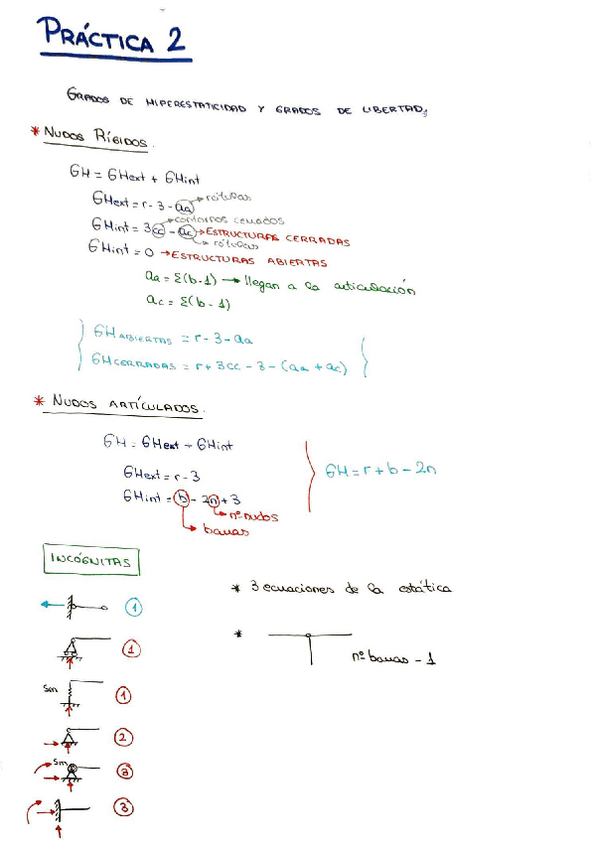 PRÁCTICA 2
GRADOS DE HIPERESTATICIDAD Y GRADOS DE LIBERTAD,
* NUDOS RÍGIDOS.
GH = GHext + GHint
GHext = r - 3 - aa → rótulas
GHint = 3cc - ac → ESTRUCTURAS CERRADAS
contornos cerrados
rótulas
GHint = 0 → ESTRUCTURAS ABIERTAS
aa = Σ(b-1) → llegan a la articulación
ac = Σ(b-1)
GH ABIERTAS = r - 3 - aa
GH CERRADAS = r + 3cc - 3 - (aa + ac)
* NUDOS ARTÍCULADOS.
GH = GHext + GHint
GHext = r - 3
GHint = b - 2n + 3
nº nudos
barras
GH = r + b - 2n
INCÓGNITAS
* 3 ecuaciones de la estática
1
1
* nº barras - 1
Sm 1
2
Sm 3
3